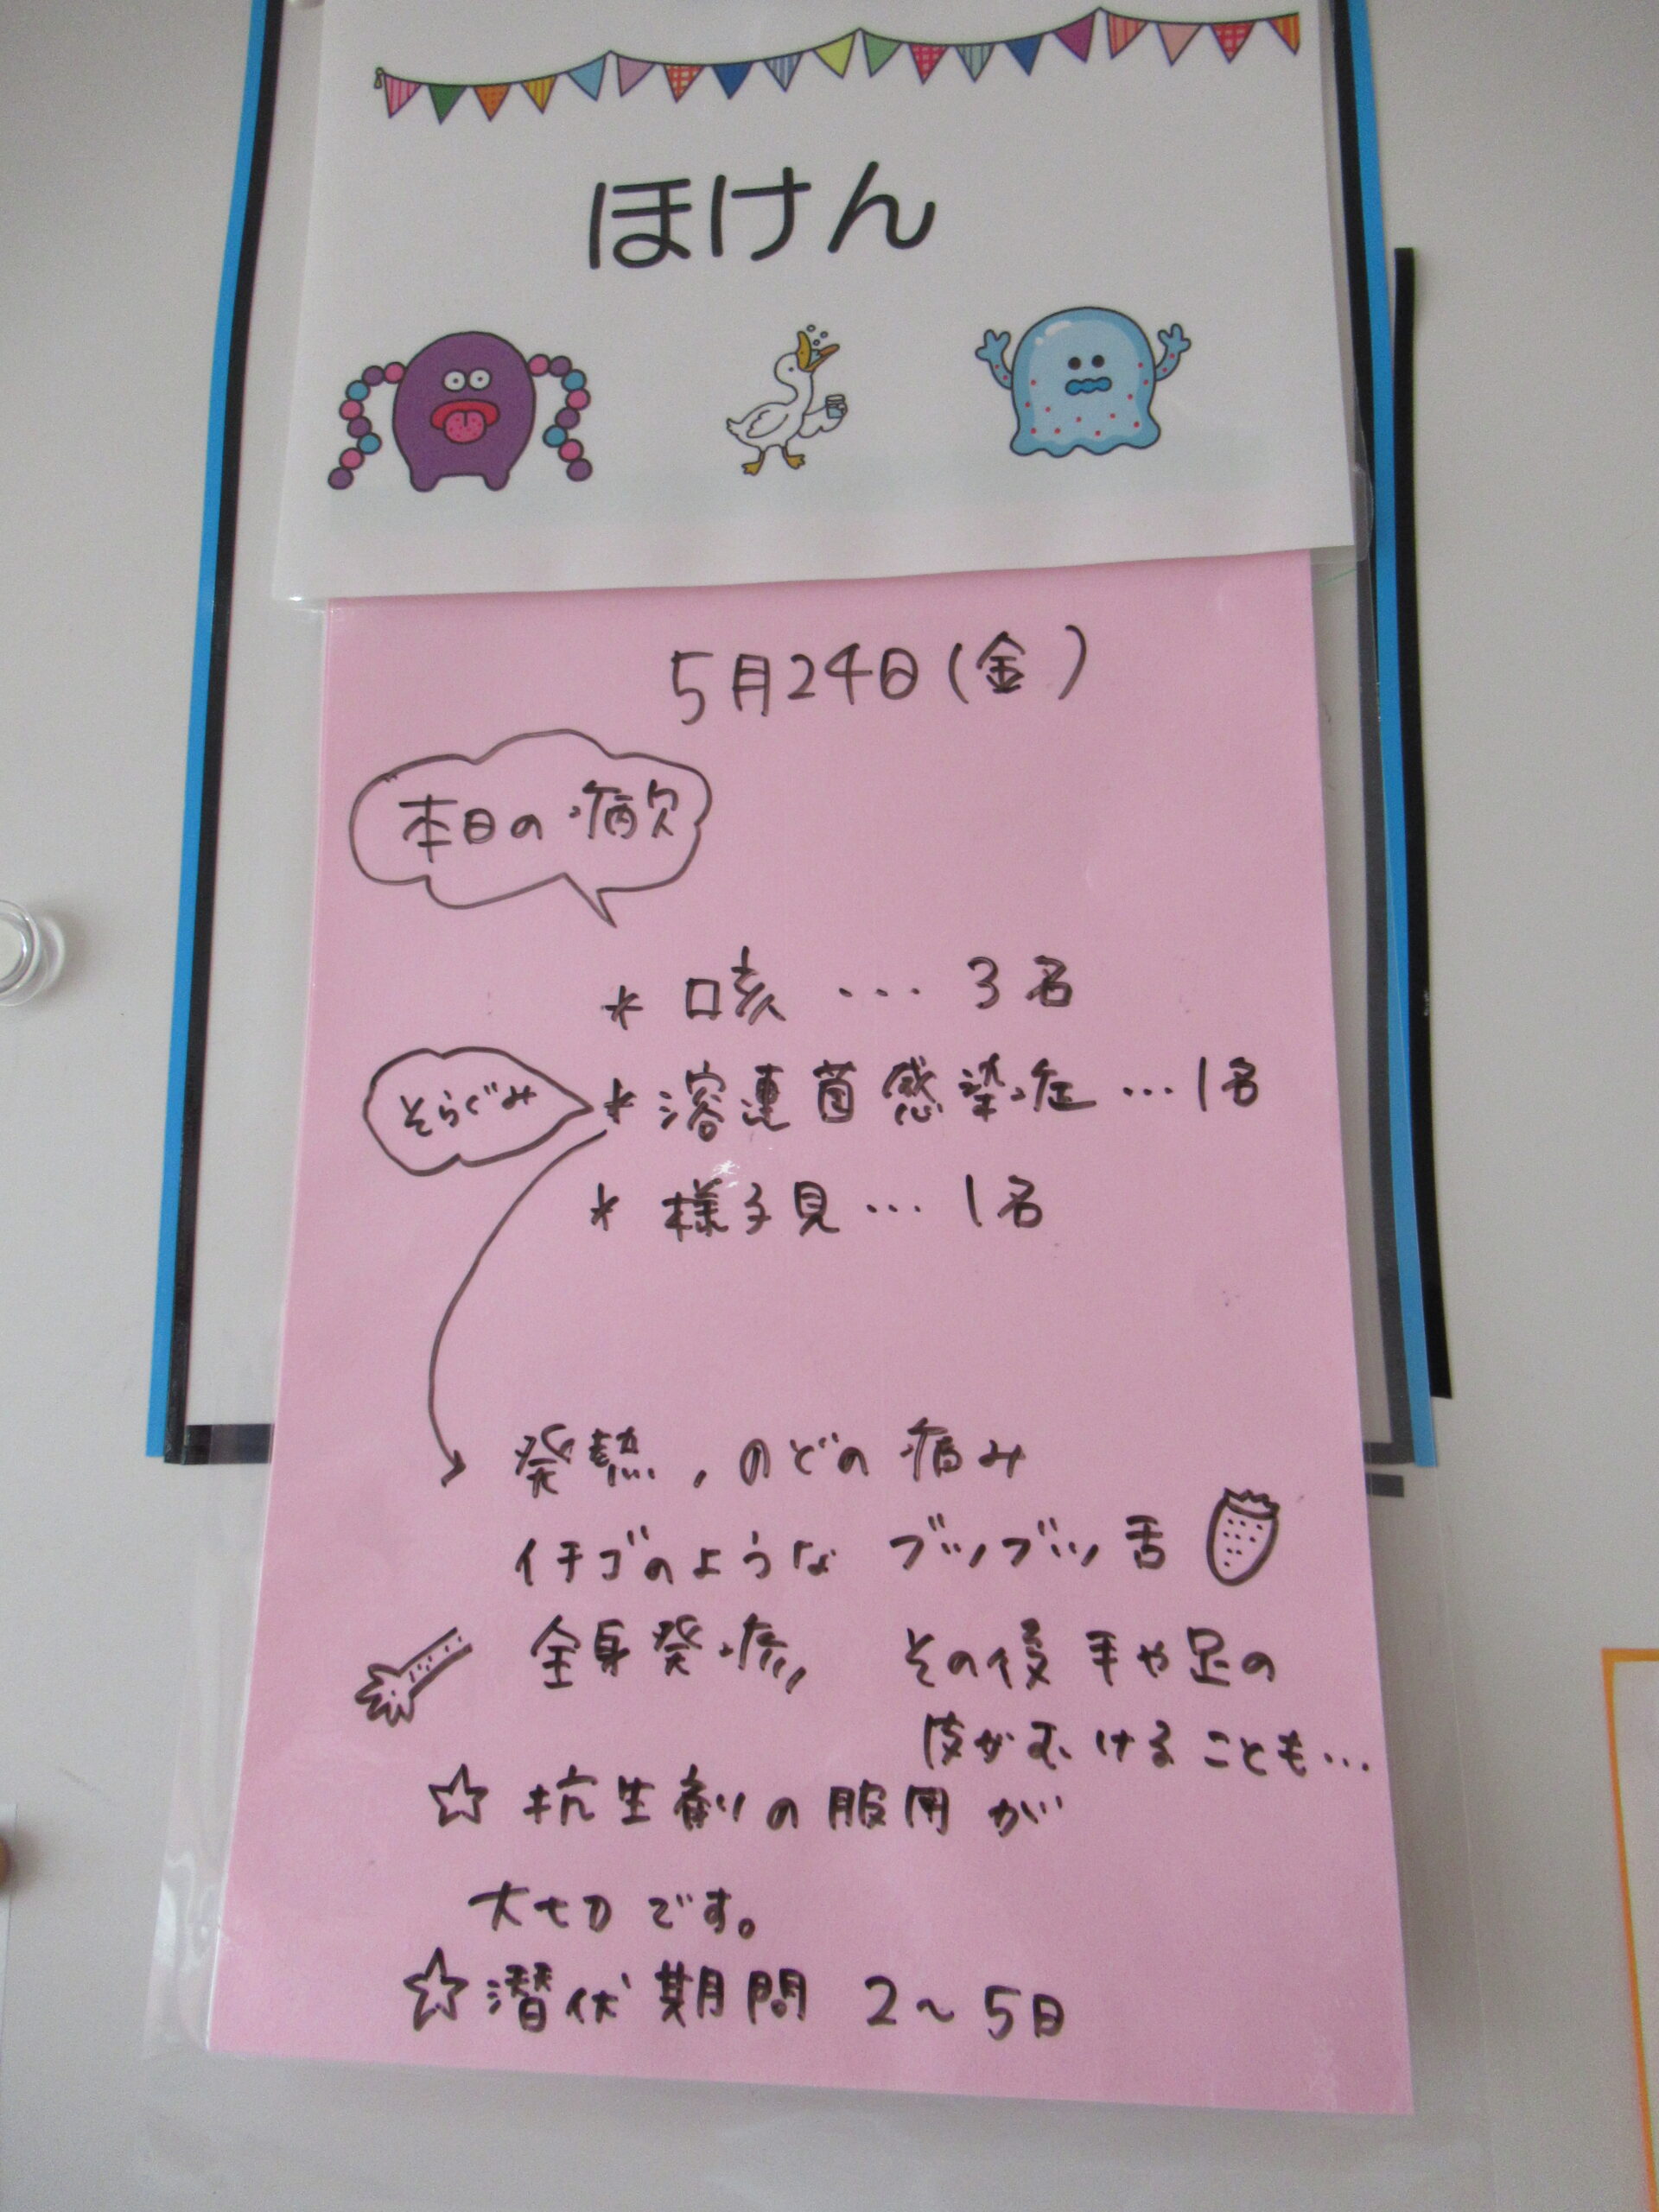 ほけん
5月24日(金)
本日の病欠
* 咳 ... 3名
そらぐみ
* 溶連菌感染症...1名
* 様子見... 1名
発熱,のどの痛み
イチゴのような ブツブツ舌
全身発疹, その後手や足の
皮がむけることも...
☆ 抗生剤の服用が
大切です。
☆潜伏期間 2〜5日